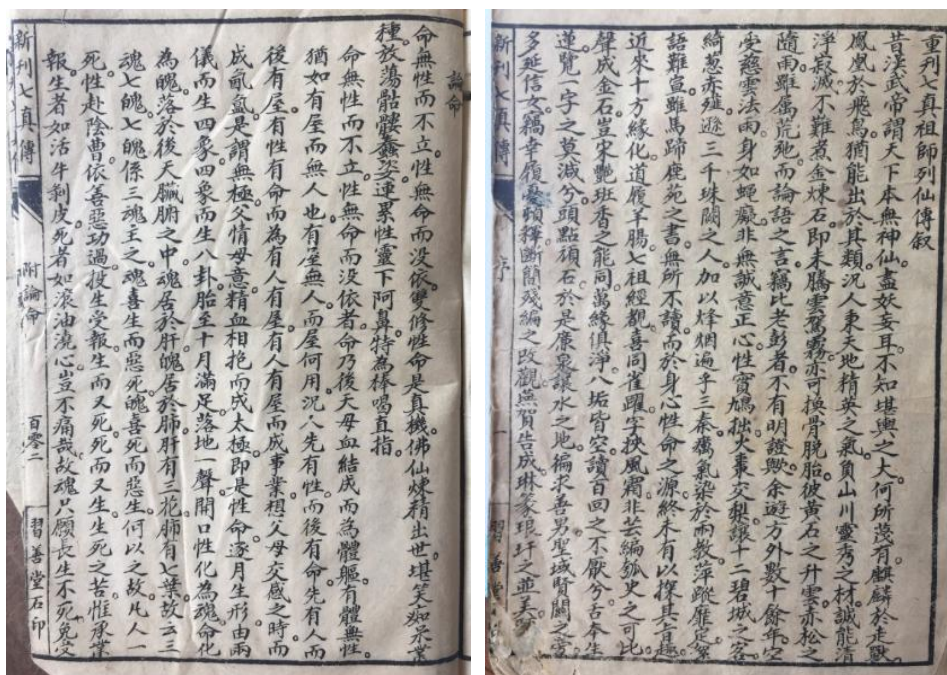 重刊七真祖師列仙傳叙
昔漢武帝謂天下本無神仙盡妖妄耳不知堪輿之大何所蔑有麒麟於走獸
鳳凰於飛鳥猶能出於其類況人秉天地精英之氣負山川靈秀之材誠能清
淨寂滅不難煮金煉石即未騰雲駕霧亦可換骨脫胎彼黄石之升雲赤松之
隨雨雖属荒弛而論語之言竊比老彭者不有明證歟余遊方外數十餘年空
受慈雲法雨身如蠅癡非無誠意正心性實鳩拙火棗交梨讓十二碧城之客
綺葱赤薤遜三千珠闕之人加以烽烟遍乎三秦癘氣染於兩教萍蹤靡定絮
語難宣雖馬蹄苑之書無所不讀而於身心性命之源終未有以探其旨趣
近來十方緣化道履羊腸七祖經覩喜同雀躍字挾風霜非芸編瓠史之可比
聲成金石豈宋艷班香之能同萬緣俱淨八垢皆空讀百回之不厭兮舌本生
蓮覽一字之莫減兮頭點頑石於是廉泉讓水之地徧求善男聖域賢關之堂
多延信女竊幸履憂頻釋斷簡殘編之改觀無賀告成琳篆琅玕之並美
新刊七真傳 序 一 習善堂
論命
命無性而不立性無命而没依雙修性命是真機佛仙煉精出世堪笑痴呆業
種放蕩骷髏蠢姿運累性靈下阿鼻特為棒喝直指
命無性而不立性無命而没依者命乃後天母血結成而為體軀有體無性
猶如有屋而無人也有屋無人而屋何用況八先有性而後有命先有人而
後有屋有性有命而為有人有屋有人有屋而成事業想父母交感之時而
成氤氲是謂無極父情母意精血相抱而成太極即是性命逐月生形由兩
儀而生四象四象而生八卦胎至十月滿足落地一聲開口性化為魂命化
為魄落於後天臟腑之中魂居於肝魄居於肺肝有三花肺有七葉故云三
魂七魄七魄係三魂主之魂喜生而惡死魄喜死而惡生何以之故凡人一
死性赴陰曹依善惡功過投生受報生而又死死而又生生死之苦惟承業
報生者如活牛剝皮死者如滚油澆心豈不痛哉故魂只願長生不死免受
新刊七真傳 附論命 百零二 習善堂石印